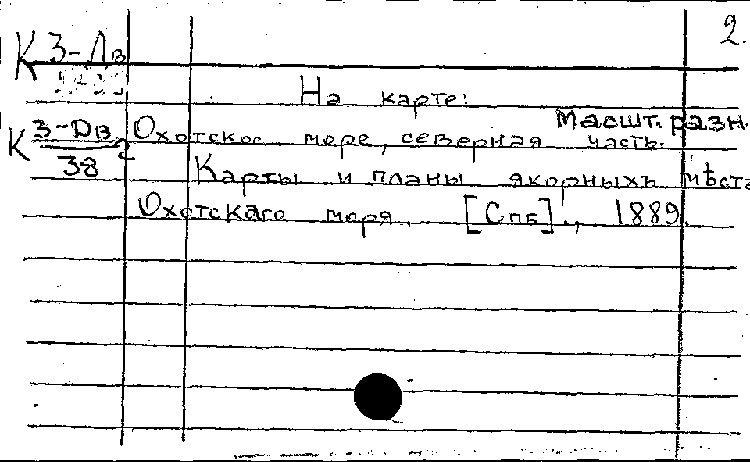 2.
К 3-Дв
На карте:
Масшт. разн.
К 3-Dв/38 Охотское море, северная часть.
Карты и планы якорныхъ мѣстъ
Охотскаго моря. [Спб]., 1889